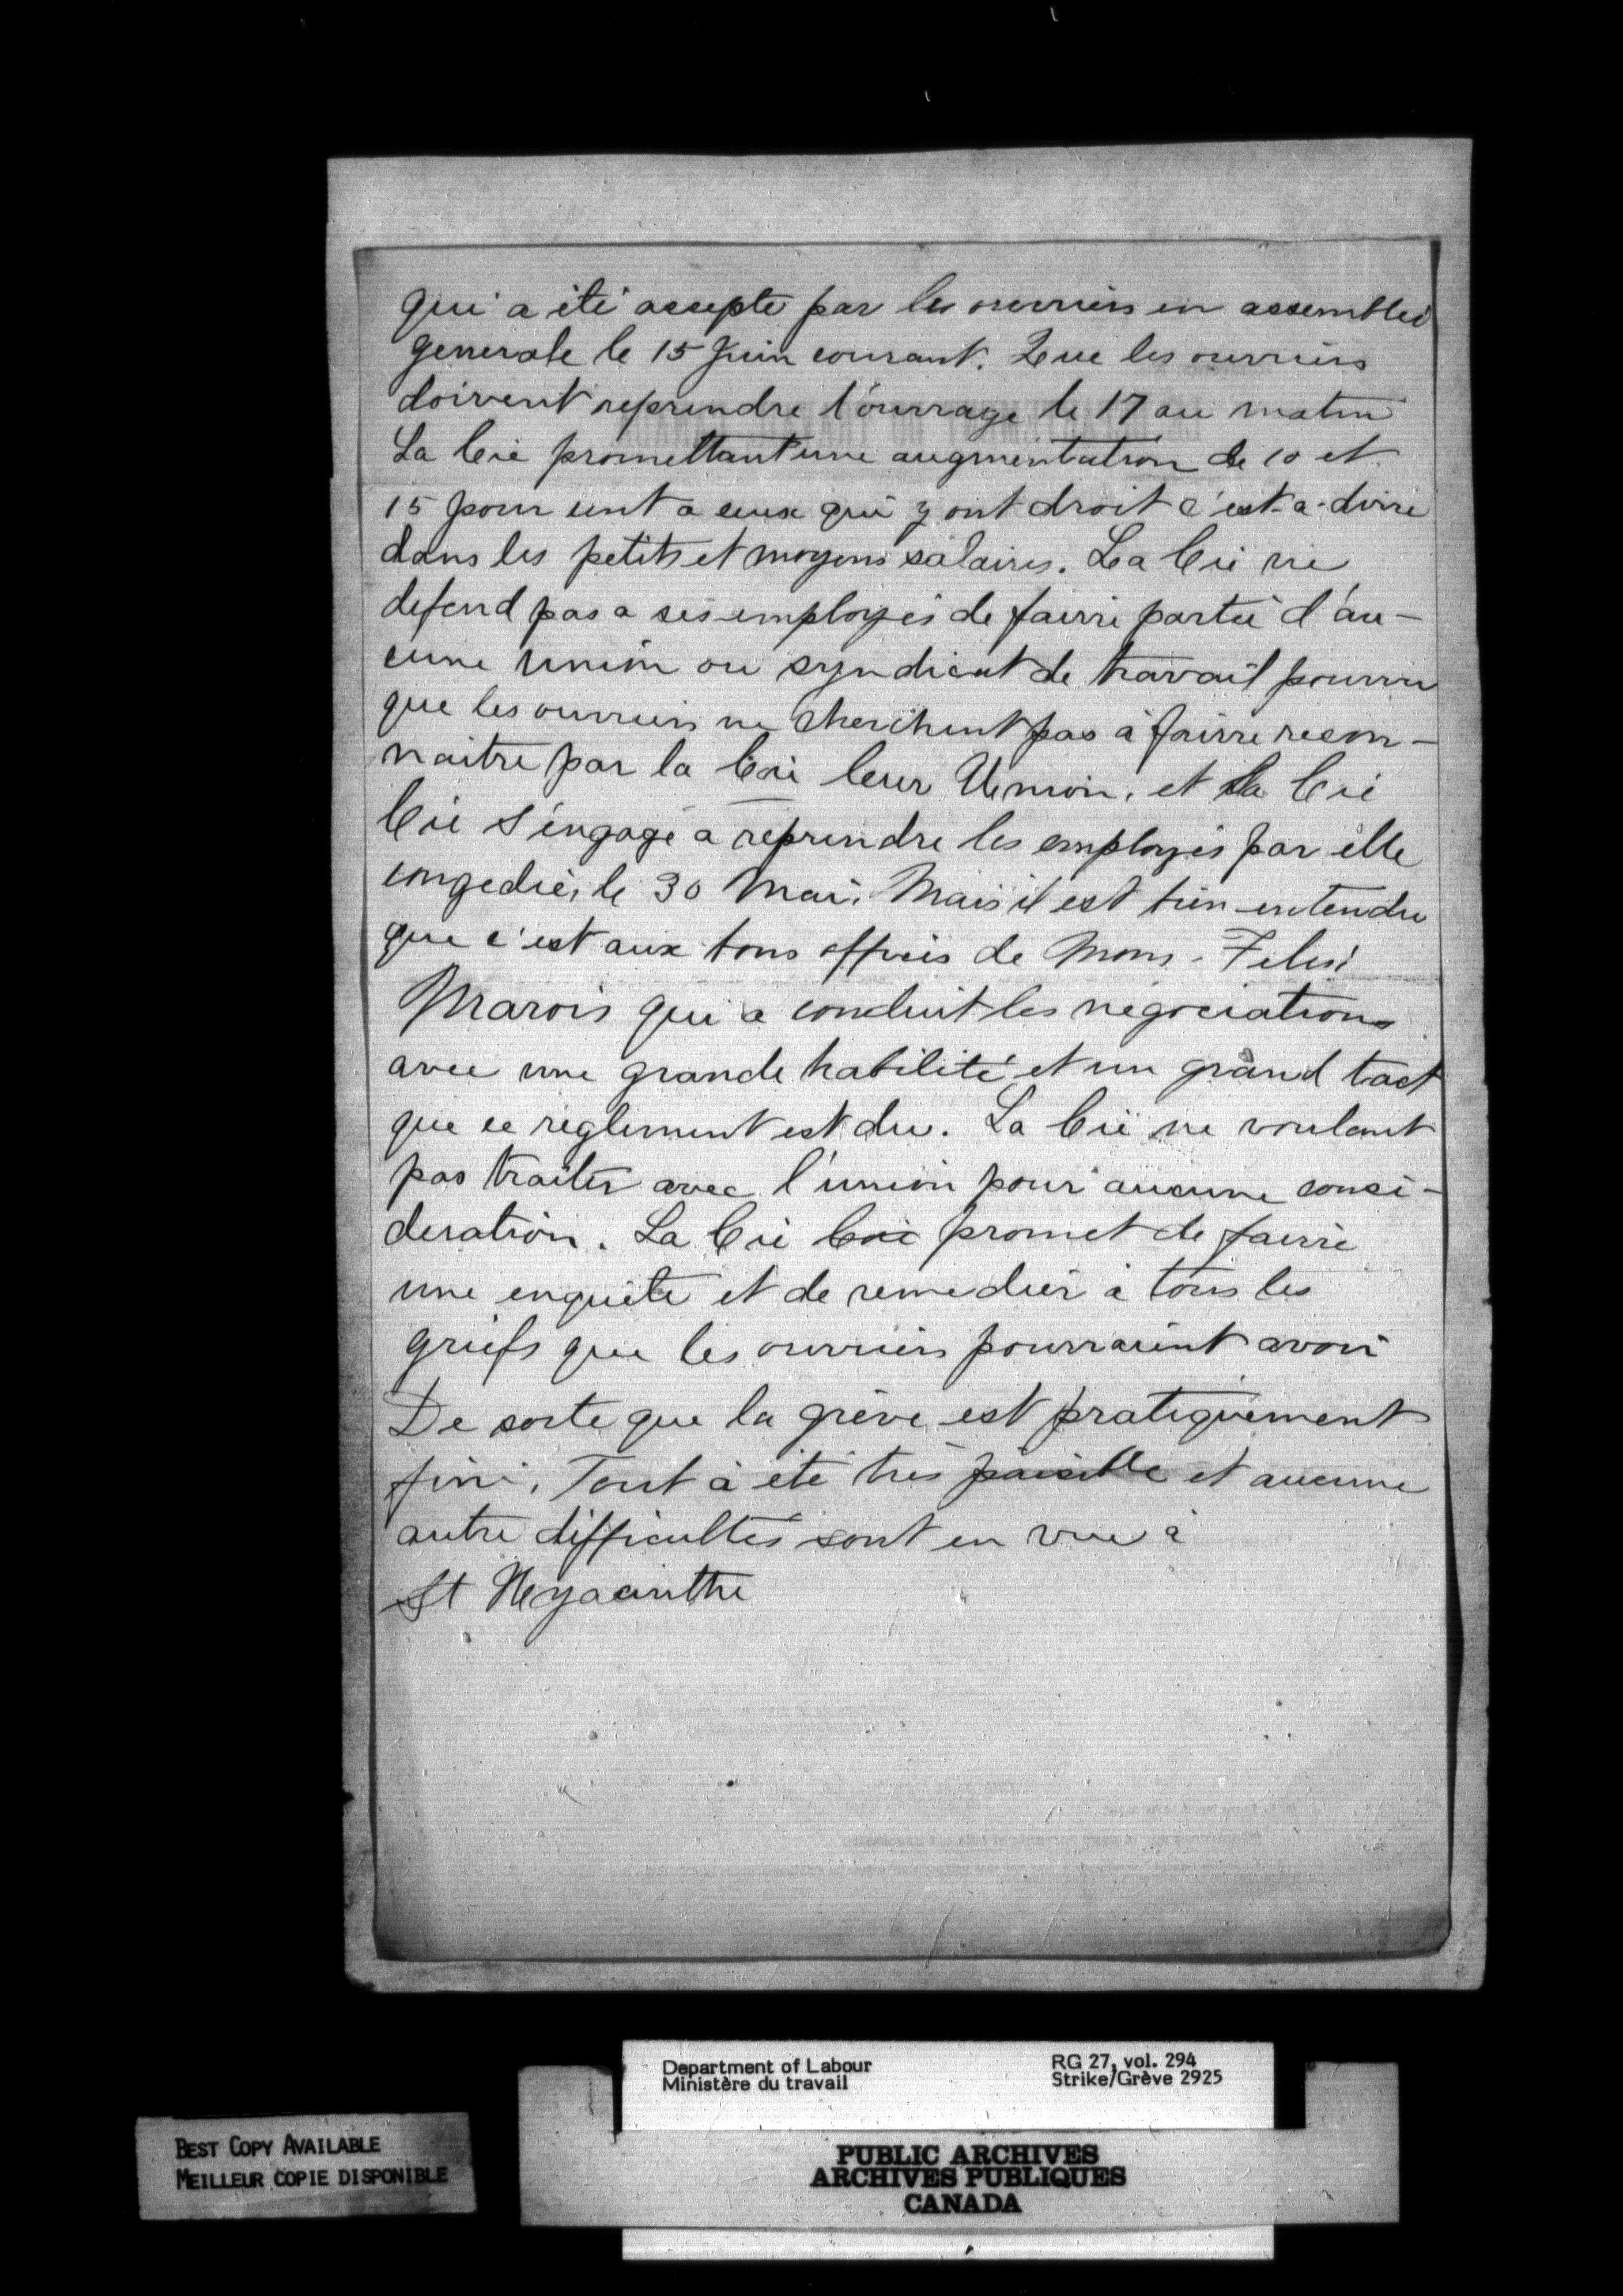 qui a été accepte par les ouvriers en assemblée
generale le 15 Juin courant. Que les ouvriers
doivent reprendre l'ouvrage le 17 au matin
La Cie promettant une augmentation de 10 et
15 pour cent a ceux qui y ont droit c'est-a-dire
dans les petits et moyens salaires. La Cie ne
defend pas a ses employés de faire partie d'au-
cune union ou syndicat de travail pourvu
que les ouvriers ne cherchent pas à faire recon-
naitre par la Cie leur Union. et la Cie
Cie s'engage a reprendre les employés par elle
congediés le 30 Mai. Mais il est bien entendu
que c'est aux bons offices de Mons. Felix
Marois qui a conduit les negociations
avec une grande habilité et un grand tact
que ce reglement est du. La Cie ne voulant
pas traiter avec l'union pour aucune consi-
deration. La Cie Cie promet de faire
une enquête et de remedier à tous les
griefs que les ouvriers pourraient avoir
De sorte que la grève est pratiquement
fini. Tout à été très paisible et aucune
autre difficultés sont en vue à
St Hyacinthe
Department of Labour
Ministère du travail
RG 27, vol. 294
Strike/Grève 2925
BEST COPY AVAILABLE
MEILLEUR COPIE DISPONIBLE
PUBLIC ARCHIVES
ARCHIVES PUBLIQUES
CANADA